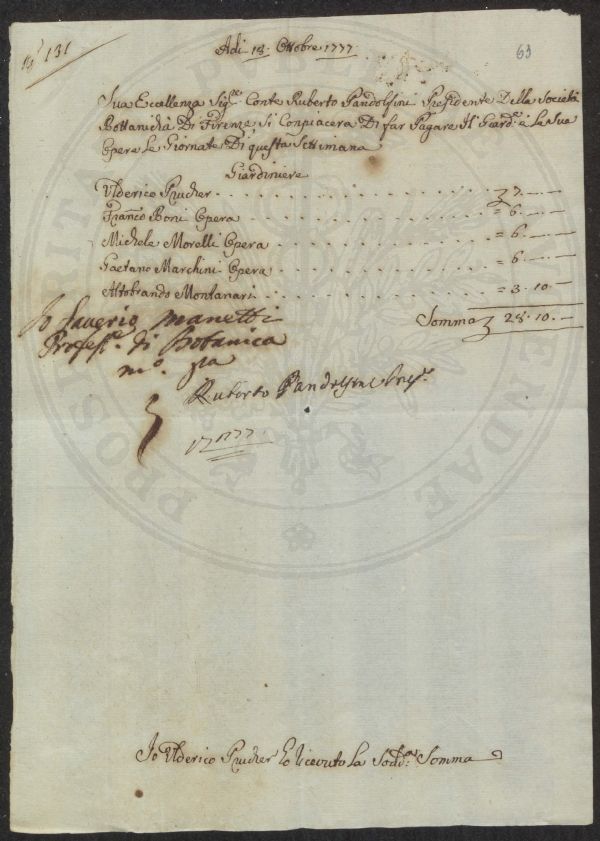 N° 131
Adi 18. Ottobre 1777
63
Sua Eccellenza Sigre. Conte Ruberto Pandolfini Presidente Della Società
Bottanicha Di Firenze Si Conpiacera Di far Pagare Il Giard: e La Sua
Opera Le Giornate Di questa Settimana
Giardiniere
Ulderico Prucher 7.
Franco Boni Opera = 6.
Michele Morelli Opera = 6.
Gaetano Marchini Opera = 6.
Altobrando Montanari = 3. 10
Somma 28. 10
Io Saverio Manetti
Profesre. di Botanica
mo. pa
Ruberto Pandolfini Pres.
Io Ulderico Prucher ho ricevuto La Sodda. Somma
PROSPERITATI PUBLICAE AUGENDAE